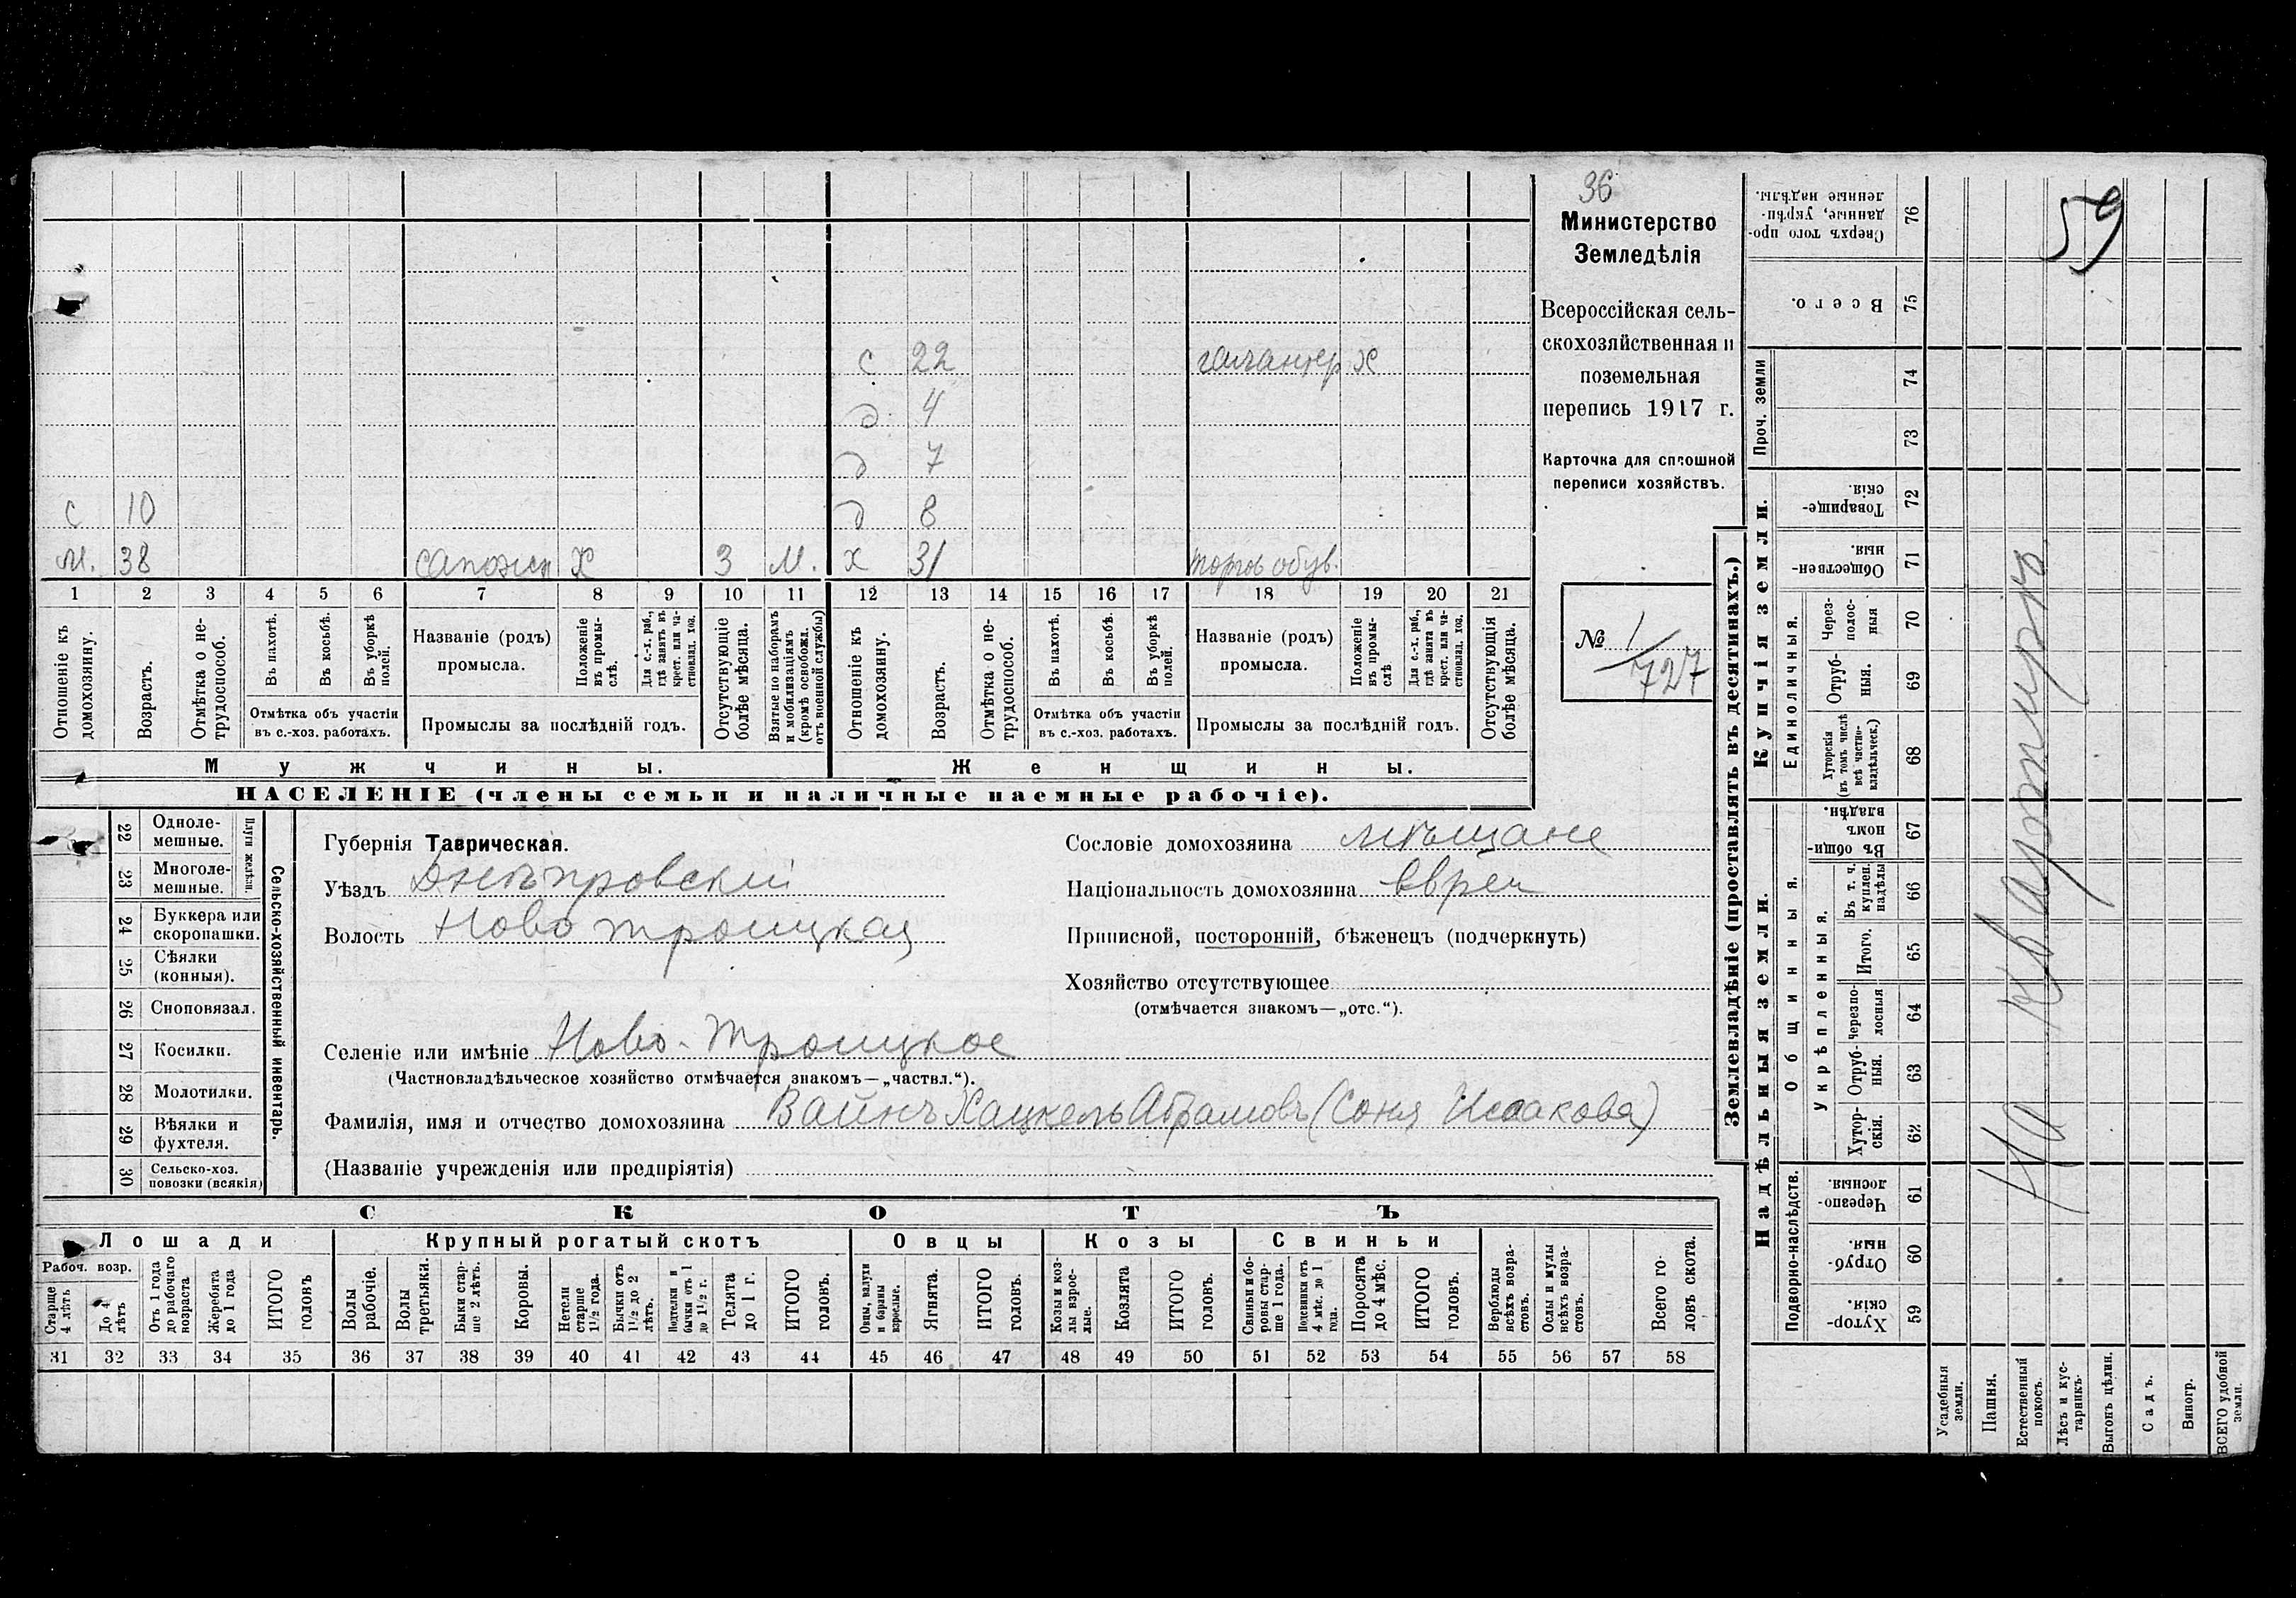 36
Министерство
Земледѣлія
Всероссійская сель-
скохозяйственная и
поземельная
перепись 1917 г.
Карточка для сплошной
переписи хозяйствъ.
№ 1/727
с 22 галантер х
д 4
д 7
с 10 д 8
м. 38 сапожн х 3 м. х 31 торгов обув.
1 2 3 4 5 6 7 8 9 10 11 12 13 14 15 16 17 18 19 20 21
Отношеніе къ домохозяину.
Возрастъ.
Отмѣтка о не-трудоспособ.
Въ пахотѣ.
Въ косьбѣ.
Въ уборкѣ полей.
Отмѣтка объ участіи
въ с.-хоз. работахъ.
Названіе (родъ)
промысла.
Положеніе въ промы-слѣ.
Для с.-х. раб., гдѣ занятъ въ крест. или ча-стновлад. хоз.
Промыслы за послѣдній годъ.
Отсутствующіе болѣе мѣсяца.
Взятые по наборамъ и мобилизаціямъ (кромѣ освобожд. отъ военной службы)
Отношеніе къ домохозяину.
Возрастъ.
Отмѣтка о не-трудоспособ.
Въ пахотѣ.
Въ косьбѣ.
Въ уборкѣ полей.
Отмѣтка объ участіи
въ с.-хоз. работахъ.
Названіе (родъ)
промысла.
Положеніе въ промы-слѣ
Для с.-х. раб., гдѣ занята въ крест. или ча-стновлад. хоз.
Промыслы за послѣдній годъ.
Отсутствующія болѣе мѣсяца.
Мужчины. Женщины.
НАСЕЛЕНІЕ (члены семьи и наличные наемные рабочіе).
Сельско-хозяйственный инвентарь.
Плуги желѣзн.
22 Одноле-мешные.
23 Многоле-мешные.
24 Буккера или скоропашки.
25 Сѣялки (конныя).
26 Сноповязал.
27 Косилки.
28 Молотилки.
29 Вѣялки и фухтеля.
30 Сельско-хоз. повозки (всякія)
Губернія Таврическая.
Уѣздъ Днѣпровскій
Волость Ново троицкая
Селеніе или имѣніе Ново-Троицкое
(Частновладѣльческое хозяйство отмѣчается знакомъ—„частвл.“).
Фамилія, имя и отчество домохозяина Вайнъ Хацкель Абрамовъ (Соня Исаакова)
(Названіе учрежденія или предпріятія)
Сословіе домохозяина мѣщане
Національность домохозяина евреи
Приписной, посторонній, бѣженецъ (подчеркнуть)
Хозяйство отсутствующее
(отмѣчается знакомъ—„отс.“).
СКОТЪ
Лошади
Рабоч. возр.
Старше 4 лѣтъ
До 4 лѣтъ
Отъ 1 года до рабочаго возраста
Жеребята до 1 года
ИТОГО головъ
Крупный рогатый скотъ
Волы рабочіе.
Волы третьяки.
Быки стар-ше 2 лѣтъ.
Коровы.
Нетели старше 1½ года.
Бычки отъ 1½ до 2 лѣтъ.
Подтелки и бычки отъ 1 до 1½ г.
Телята до 1 г.
ИТОГО головъ.
Овцы
Овцы, валухи и бараны взрослые.
Ягнята.
ИТОГО головъ.
Козы
Козы и коз-лы взрос-лые.
Козлята
ИТОГО головъ.
Свиньи
Свиньи и бо-ровы стар-ше 1 года.
Подсвинки отъ 4 мѣс. до 1 года.
Поросята до 4 мѣс.
ИТОГО головъ.
Верблюды всѣхъ возра-стовъ.
Ослы и мулы всѣхъ возра-стовъ.
Всего го-ловъ скота.
31 32 33 34 35 36 37 38 39 40 41 42 43 44 45 46 47 48 49 50 51 52 53 54 55 56 57 58
Землевладѣніе (проставлять въ десятинахъ.)
Надѣльныя земли.
Купчія земли.
Проч. земли
Подворно-наслѣдств.
Общинныя.
Укрѣпленныя.
Единоличныя.
Хутор-скія. 59
Отруб-ныя. 60
Черезпо-лосныя. 61
Хутор-скія. 62
Отруб-ныя. 63
Черезпо-лосныя 64
Итого. 65
Въ т. ч. куплен. надѣлы 66
Въ общин-номъ владѣн. 67
Хуторскія (въ томъ числѣ всѣ частно-владѣльческ.) 68
Отруб-ныя. 69
Через-полос-ныя 70
Обществен-ныя. 71
Товарище-скія. 72
73
74
Всего. 75
Сверхъ того про-данные, укрѣп-ленные надѣлы. 76
Усадебныя земли.
Пашня.
Естественный покосъ.
Лѣсъ и кус-тарникъ.
Выгонъ цѣлин.
Садъ.
Виногр.
ВСЕГО удобной земли.
На квартирѣ
59